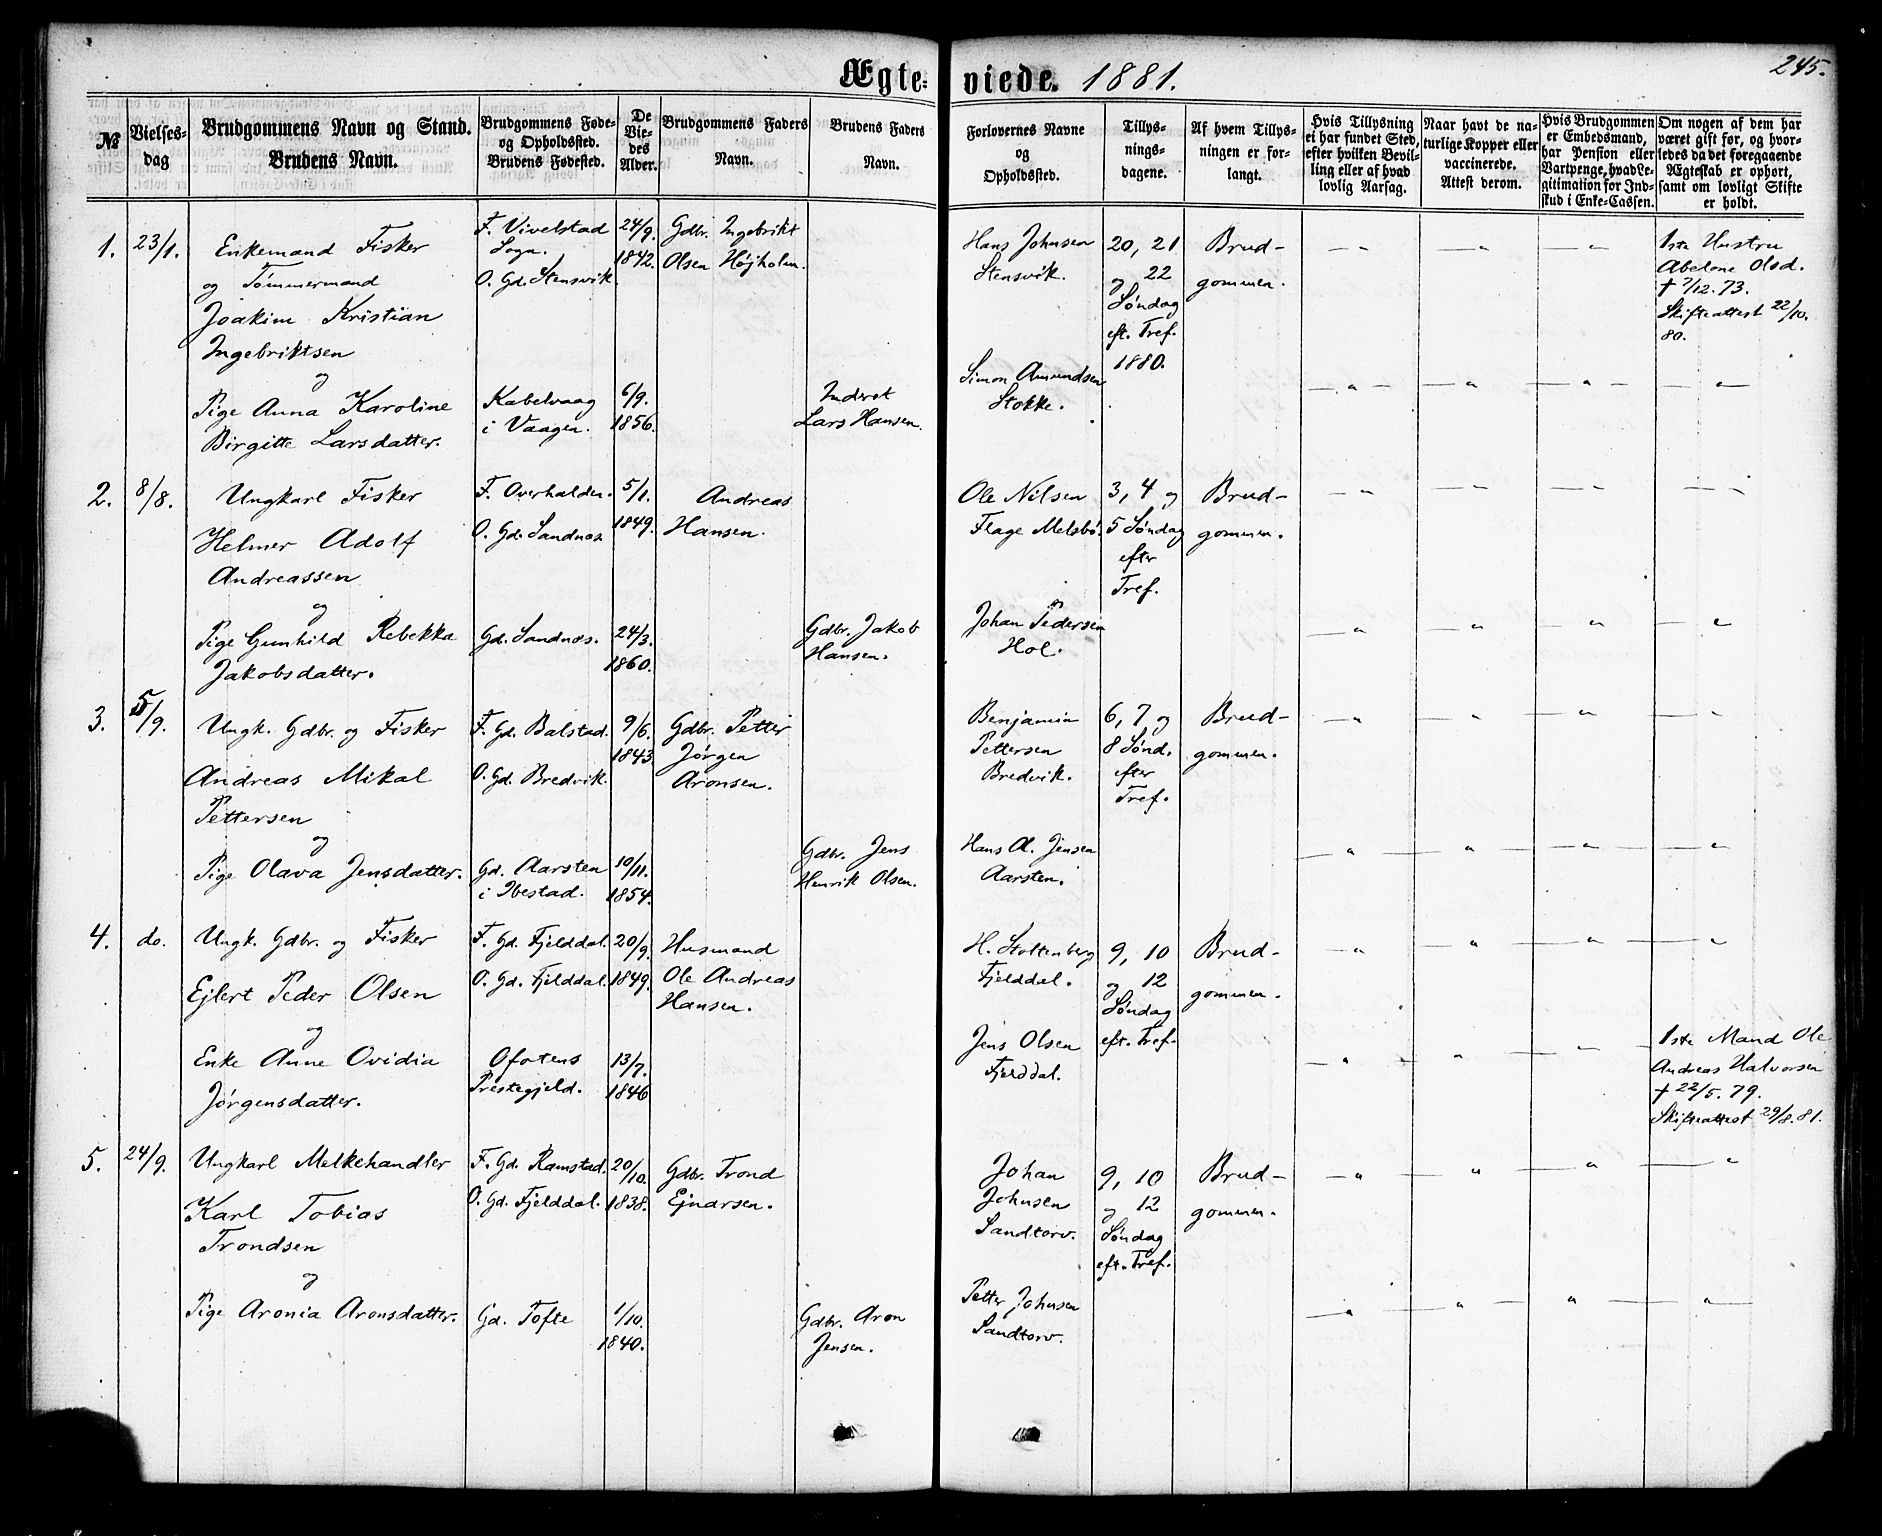 Ægte-viede. 1881.
245.
№
Vielses-
dag
Brudgommens Navn og Stand.
Brudens Navn.
Brudgommens Føde-
og Opholdssted.
Brudens Fødested.
De
Vie-
des
Alder.
Brudgommens Faders
Navn.
Brudens Faders
Navn.
Forlovernes Navne
og
Opholdssted.
Tillys-
nings-
dagene.
Af hvem Tillys-
ningen er for-
langt.
Hvis Tillysning
ei har fundet Sted,
efter hvilken Bevil-
ling eller af hvad
lovlig Aarsag.
Naar havt de na-
turlige Kopper eller
vaccinerede.
Attest derom.
Hvis Brudgommen
er Embedsmand,
har Pension eller
Vartpenge, hvad Le-
gitimation for Ind-
skud i Enke-Cassen.
Om nogen af dem har
været gift før, og hvor-
ledes da det foregaaende
Ægteskab er ophørt,
samt om lovligt Skifte
er holdt.
1.
23/1.
Enkemand Fisker
og Tømmermand
Joakim Kristian
Ingebriktsen
og
Pige Anna Karoline
Birgitte Larsdatter.
F. Vivelstad
Sogn.
O. Gd. Stensvik.
Kabelvaag
i Vaagen.
24/9.
1842.
6/9.
1856.
Gdbr. Ingebrikt
Olsen Højholm.
Inderst
Lars Hansen.
Hans Johnsen
Stensvik.
Simon Amundsen
Stokke.
20, 21
og 22
Søndag
eft. Tref.
1880.
Brud-
gommen.
— " —
— " —
— " —
1ste Hustru
Abelone Olsd.
† 7/12. 73.
Skifteattest 22/10.
80.
— " —
— " —
— " —
— " —
2.
8/8.
Ungkarl Fisker
Helmer Adolf
Andreassen
og
Pige Gunhild Rebekka
Jakobsdatter.
F. Overhalden.
O. Gd. Sandnæs.
Gd. Sandnæs.
5/1.
1849.
24/3.
1860.
Andreas
Hansen.
Gdbr. Jakob
Hansen.
Ole Nilsen
Flage Melsbø.
Johan Pedersen
Hol.
3, 4 og
5 Søndag
efter
Tref.
Brud-
gommen.
— " —
— " —
— " —
— " —
— " —
— " —
— " —
— " —
3.
5/9.
Ungk. Gdbr. og Fisker
Andreas Mikal
Pettersen
og
Pige Olava Jensdatter.
F. Gd. Balstad.
O. Gd. Bredvik.
Gd. Aarsten
i Ibestad.
9/6.
1843
19/11.
1854.
Gdbr. Petter
Jørgen
Aronsen.
Gdbr. Jens
Henrik Olsen.
Benjamin
Pettersen
Bredvik.
Hans A. Jensen
Aarsten.
6, 7 og
8 Sønd.
efter
Tref.
Brud-
gommen.
— " —
— " —
— " —
— " —
— " —
— " —
— " —
— " —
4.
do.
Ungk. Gdbr. og Fisker
Ejlert Peder Olsen
og
Enke Anne Ovidia
Jørgensdatter.
F. Gd. Fjelddal.
O. Gd. Fjelddal.
Ofotens
Prestegjeld.
20/9.
1849.
13/7.
1846
Husmand
Ole Andreas
Hansen.
H. Stoltenberg
Fjelddal.
Jens Olsen
Fjelddal.
9, 10
og 12
Søndag
eft. Tref.
Brud-
gommen.
— " —
— " —
— " —
— " —
— " —
— " —
— " —
1ste Mand Ole
Andreas Halvorsen
† 22/5. 79.
Skifteattest 29/8. 81.
5.
24/9.
Ungkarl Melkehandler
Karl Tobias
Trondsen
og
Pige Aronia Aronsdatter.
F. Gd. Ramstad.
O. Gd. Fjelddal.
Gd. Tofte
20/10.
1838.
1/10.
1840.
Gdbr. Trond
Ejnarsen.
Gdbr. Aron
Jensen.
Johan
Johnsen
Sandtorv.
Petter Johnsen
Sandtorv.
9, 10
og 12
Søndag
eft. Tref.
Brud-
gommen.
— " —
— " —
— " —
— " —
— " —
— " —
— " —
— " —